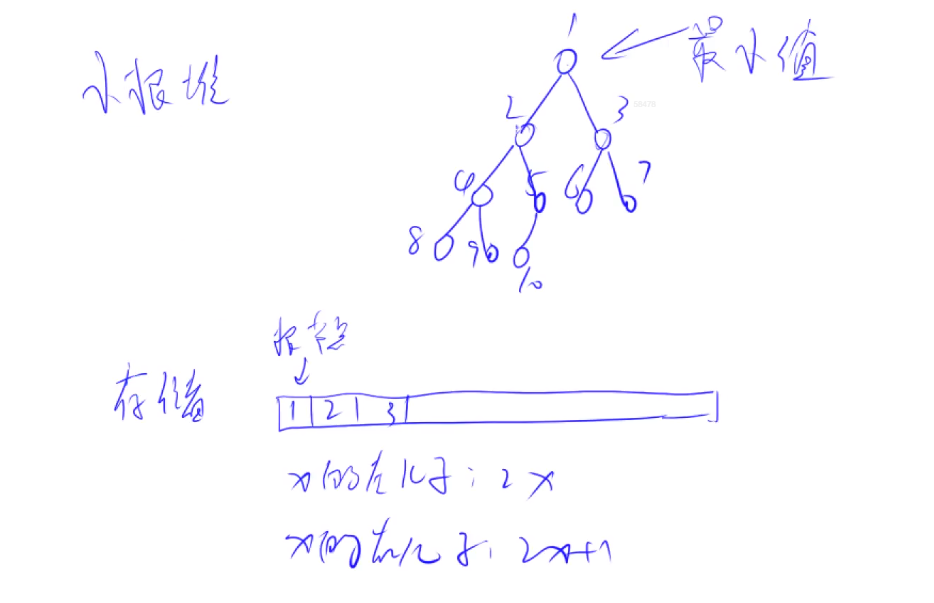 小根堆
最小值
1
2 3
4 5 6 7
8 9 10
根节点
存储
1 2 3
x的左儿子：2x
x的右儿子：2x+1